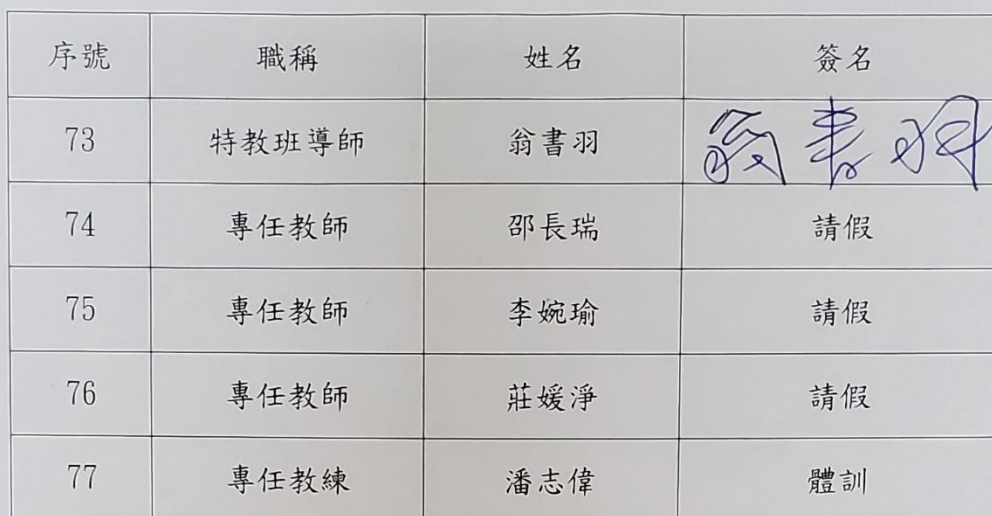 序號 職稱 姓名 簽名
73 特教班導師 翁書羽 翁書羽
74 專任教師 邵長瑞 請假
75 專任教師 李婉瑜 請假
76 專任教師 莊媛淨 請假
77 專任教練 潘志偉 體訓